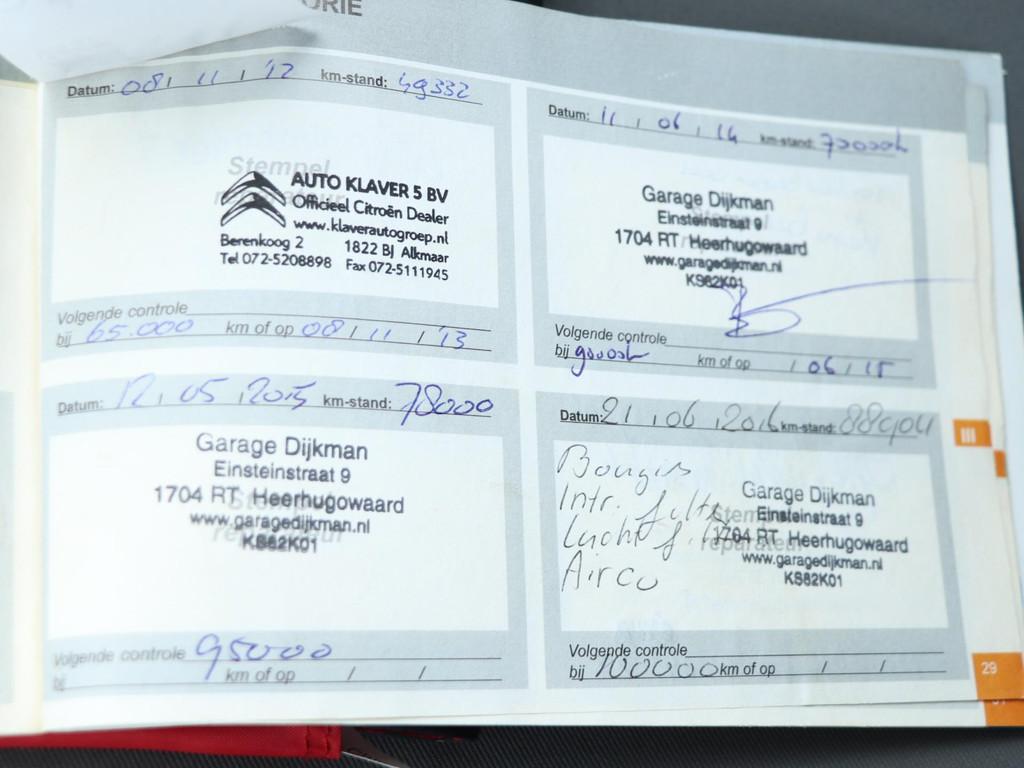 ORIE
Datum: 08 / 11 / '12 km-stand: 49332
Stempel
reparateur
AUTO KLAVER 5 BV
Officieel Citroën Dealer
www.klaverautogroep.nl
Berenkoog 2 1822 BJ Alkmaar
Tel 072-5208898 Fax 072-5111945
Volgende controle
bij 65.000 km of op 08 / 11 / '13
Datum: 11 / 06 / 14 km-stand:
Garage Dijkman
Einsteinstraat 9
1704 RT Heerhugowaard
www.garagedijkman.nl
KS82K01
Volgende controle
bij km of op / 06 / 15
Datum: 12 / 05 / 2015 km-stand: 78000
Garage Dijkman
Einsteinstraat 9
1704 RT Heerhugowaard
www.garagedijkman.nl
KS82K01
Volgende controle 95000
bij km of op / /
Datum: 21 / 06 / 2016 km-stand: 88904
Bougies
Intr. filter
Lucht filter
Airco
Stempel
reparateur
Garage Dijkman
Einsteinstraat 9
1704 RT Heerhugowaard
www.garagedijkman.nl
KS82K01
Volgende controle
bij 100000 km of op / /
III
29